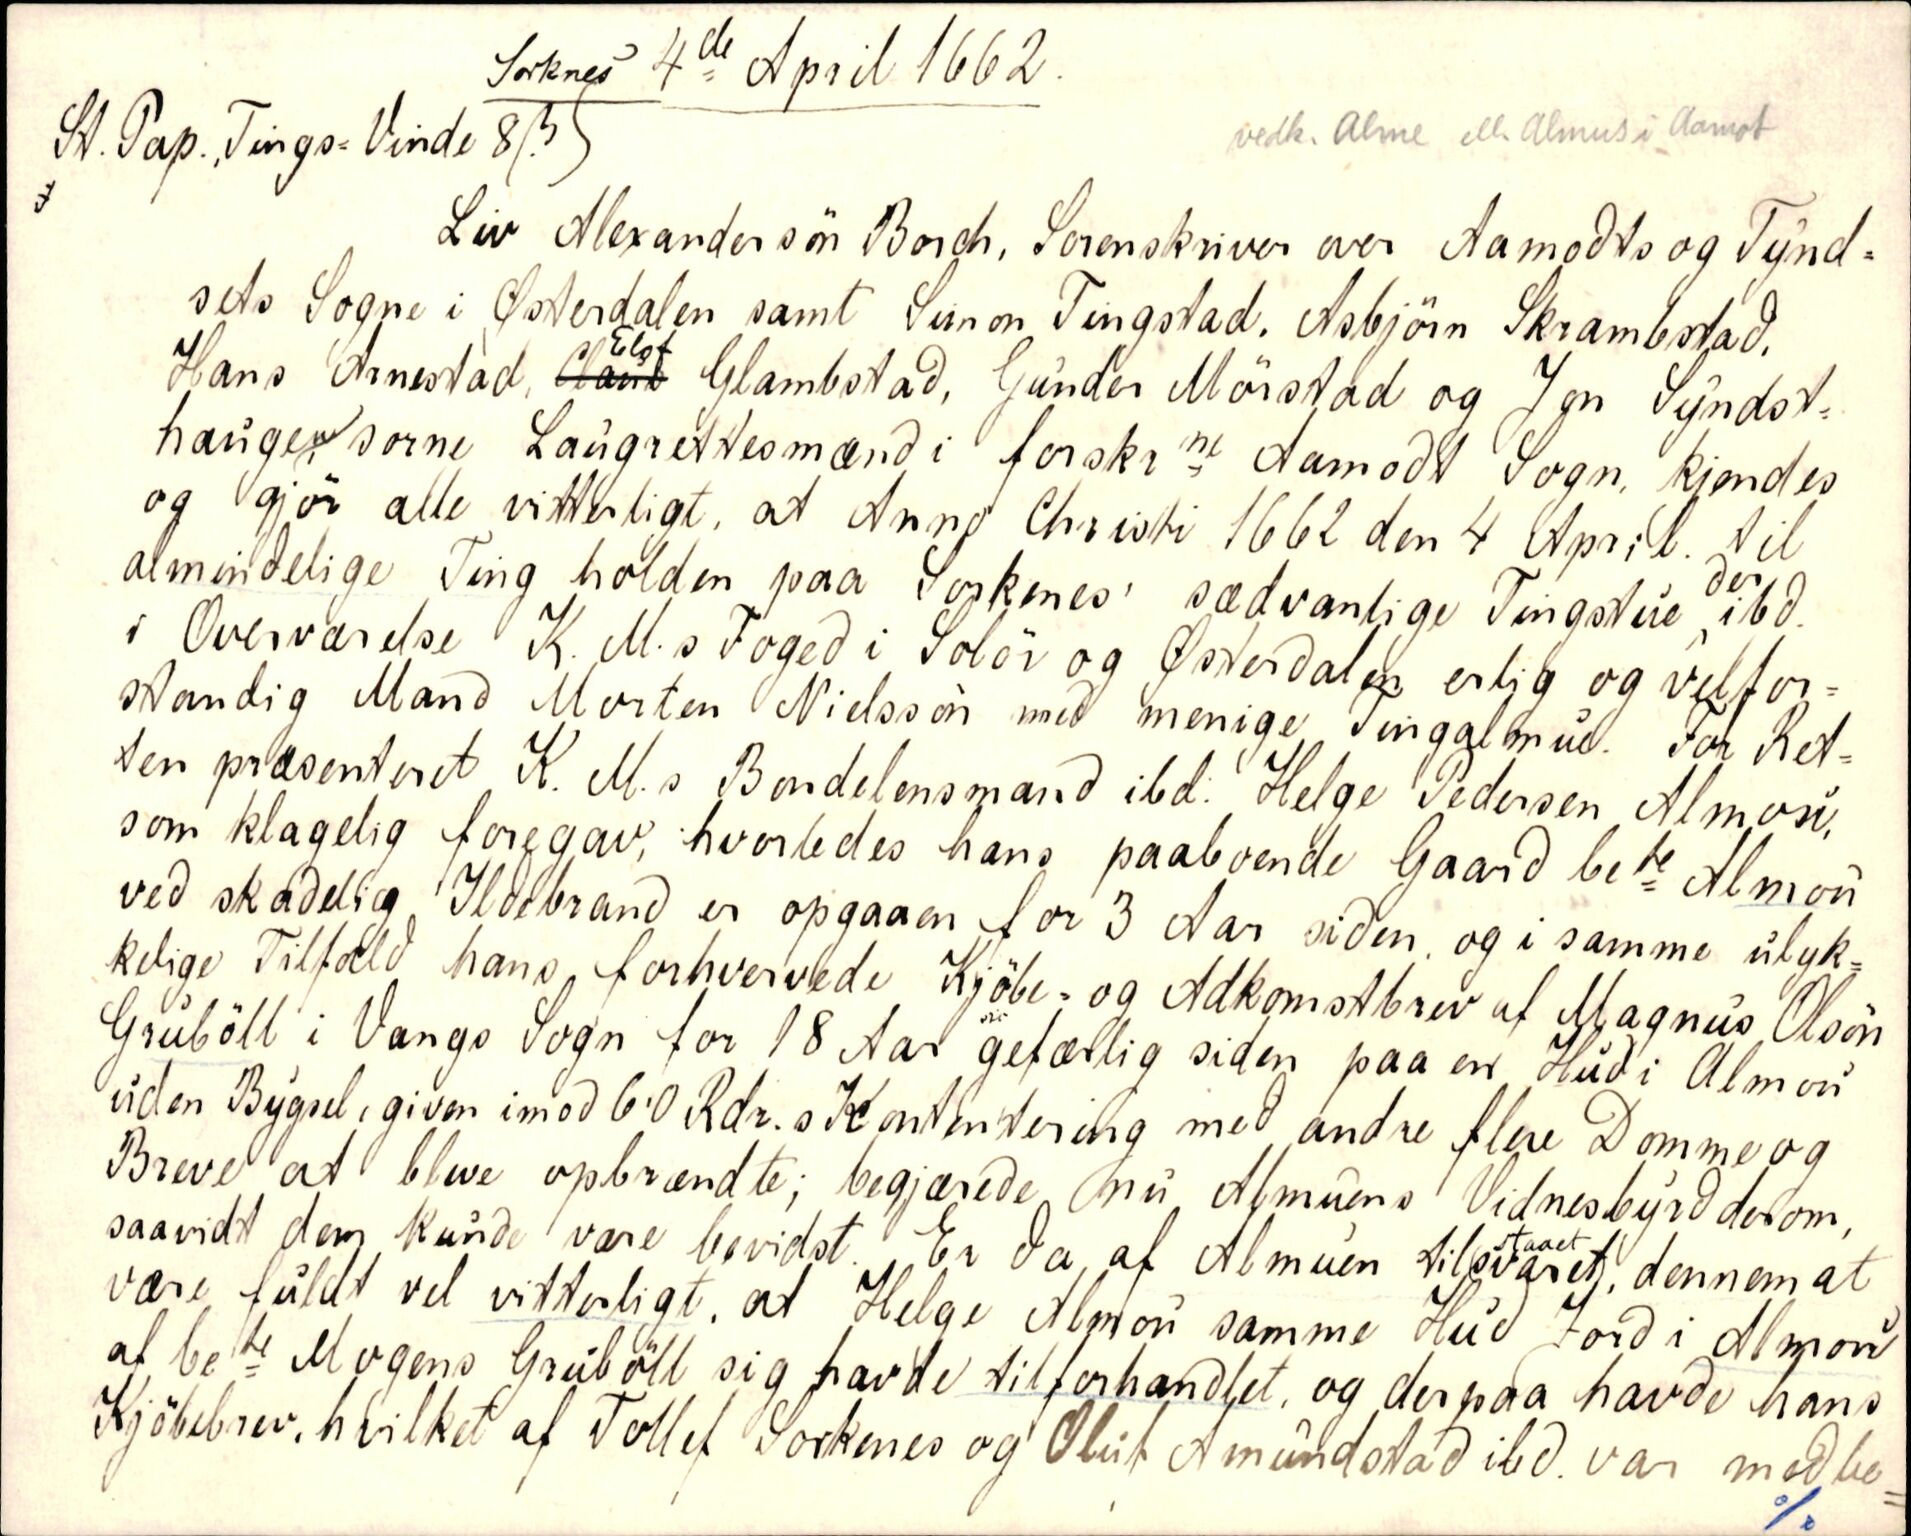 Sorknes 4de April 1662.
St. Pap., Tings-Vinde 8 β)
vedk. Alme ell. Almus i Aamot
Liv Alexandersön Borch, Sorenskriver over Aamodts og Tynd-
sets Sogne i Østerdalen samt Simon Tingstad, Asbjörn Skrambstad,
Hans Arnestad, Elof Glambstad, Gunder Mörstad og Jon Syndst-
haugen sorne Laugrettesmænd i forskrne Aamodt Sogn, kjendes
og gjör alle vitterligt, at Anno Christi 1662 den 4 April til
almindelige Ting holden paa Sorkenes' sædvanlige Tingstue der ibd.
i Overværelse K. M.s Foged i Solör og Østerdalen erlig og velfor-
standig Mand Morten Nielssön med menige Tingalmue. For Ret-
ten præsenteret K. M.s Bondelensmand ibd. Helge Pedersen Almou,
som klagelig foregav, hvorledes hans paaboende Gaard bete Almou
ved skadelig Ildebrand er opgaaen for 3 Aar siden, og i samme ulyk-
kelige Tilfæld hans forhvervede Kjöbe- og Adkomstbrev af Magnus Olsön
Gruböll i Vangs Sogn for 18 Aar sic gefærlig siden paa en Hud i Almou
uden Bygsel, given imod 60 Rdr.s Kontentering med andre flere Domme og
Breve at blive opbrændte; begjærede nu Almuens Vidnesbyrd derom,
saavidt dem kunde være bevidst. Er da af Almuen tilsvaret staaet, dennem at
være fuldt vel vitterligt, at Helge Almou samme Hud Jord i Almou
af bete Mogens Gruböll sig havde tilforhandlet, og derpaa havde hans
Kjöbebrev, hvilket af Tollef Sorkenes og Oluf Amundstad ibd. var medbe-